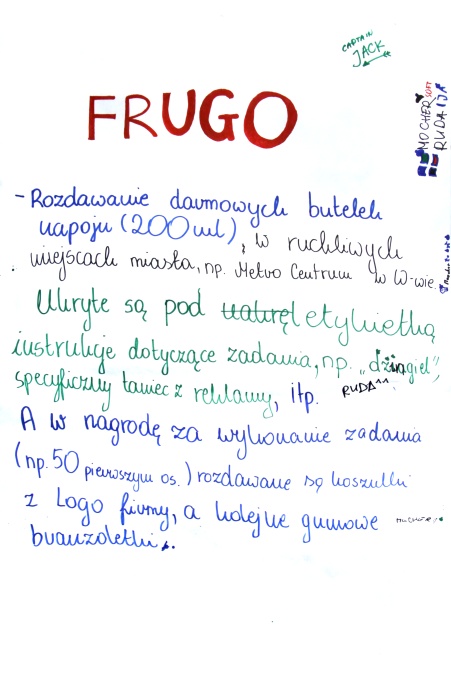 CAPTAIN
JACK
MOCHER SOFT
RUDAIJA
FRUGO
- Rozdawanie darmowych butelek
napoju (200 ml), w ruchliwych
miejscach miasta, np. Metro Centrum w W-wie.
Ukryte są pod nakręt etykietką
instrukcje dotyczące zadania, np. „dżingiel",
specyficzny taniec z reklamy, itp. RUDA^^
A w nagrodę za wykonanie zadania
(np. 50 pierwszym os.) rozdawane są koszulki
z Logo firmy, a kolejne gumowe MOCHER
branzoletki.